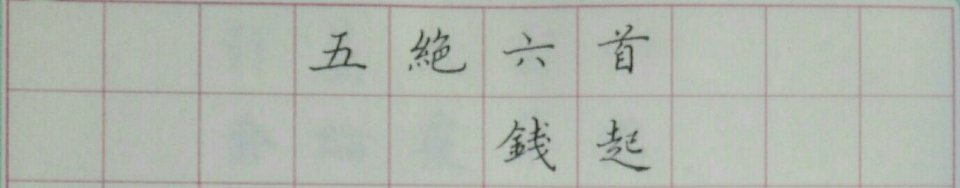 五絶六首
銭起